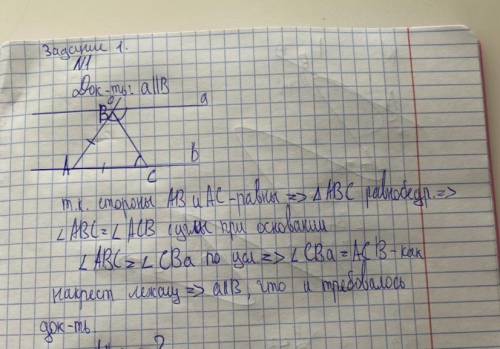 Задание 1.
N1
Док-ть: a||B
B
a
A
C
b
т.к. стороны AB и AC-равны => △ABC равнобедр. =>
∠ABC=∠ACB (углы при основании
∠ABC=∠CBa по усл => ∠CBa=ACB-как
накрест лежащ => a||B, что и требовалось
док-ть.